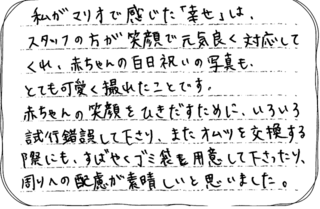 私がマリオで感じた「幸せ」は、
スタッフの方が笑顔で元気良く対応して
くれ、赤ちゃんの百日祝いの写真も、
とても可愛く撮れたことです。
赤ちゃんの笑顔をひきだすために、いろいろ
試行錯誤して下さり、またオムツを交換する
際にも、すばやくゴミ袋を用意して下さったり、
周りへの配慮が素晴しいと思いました。